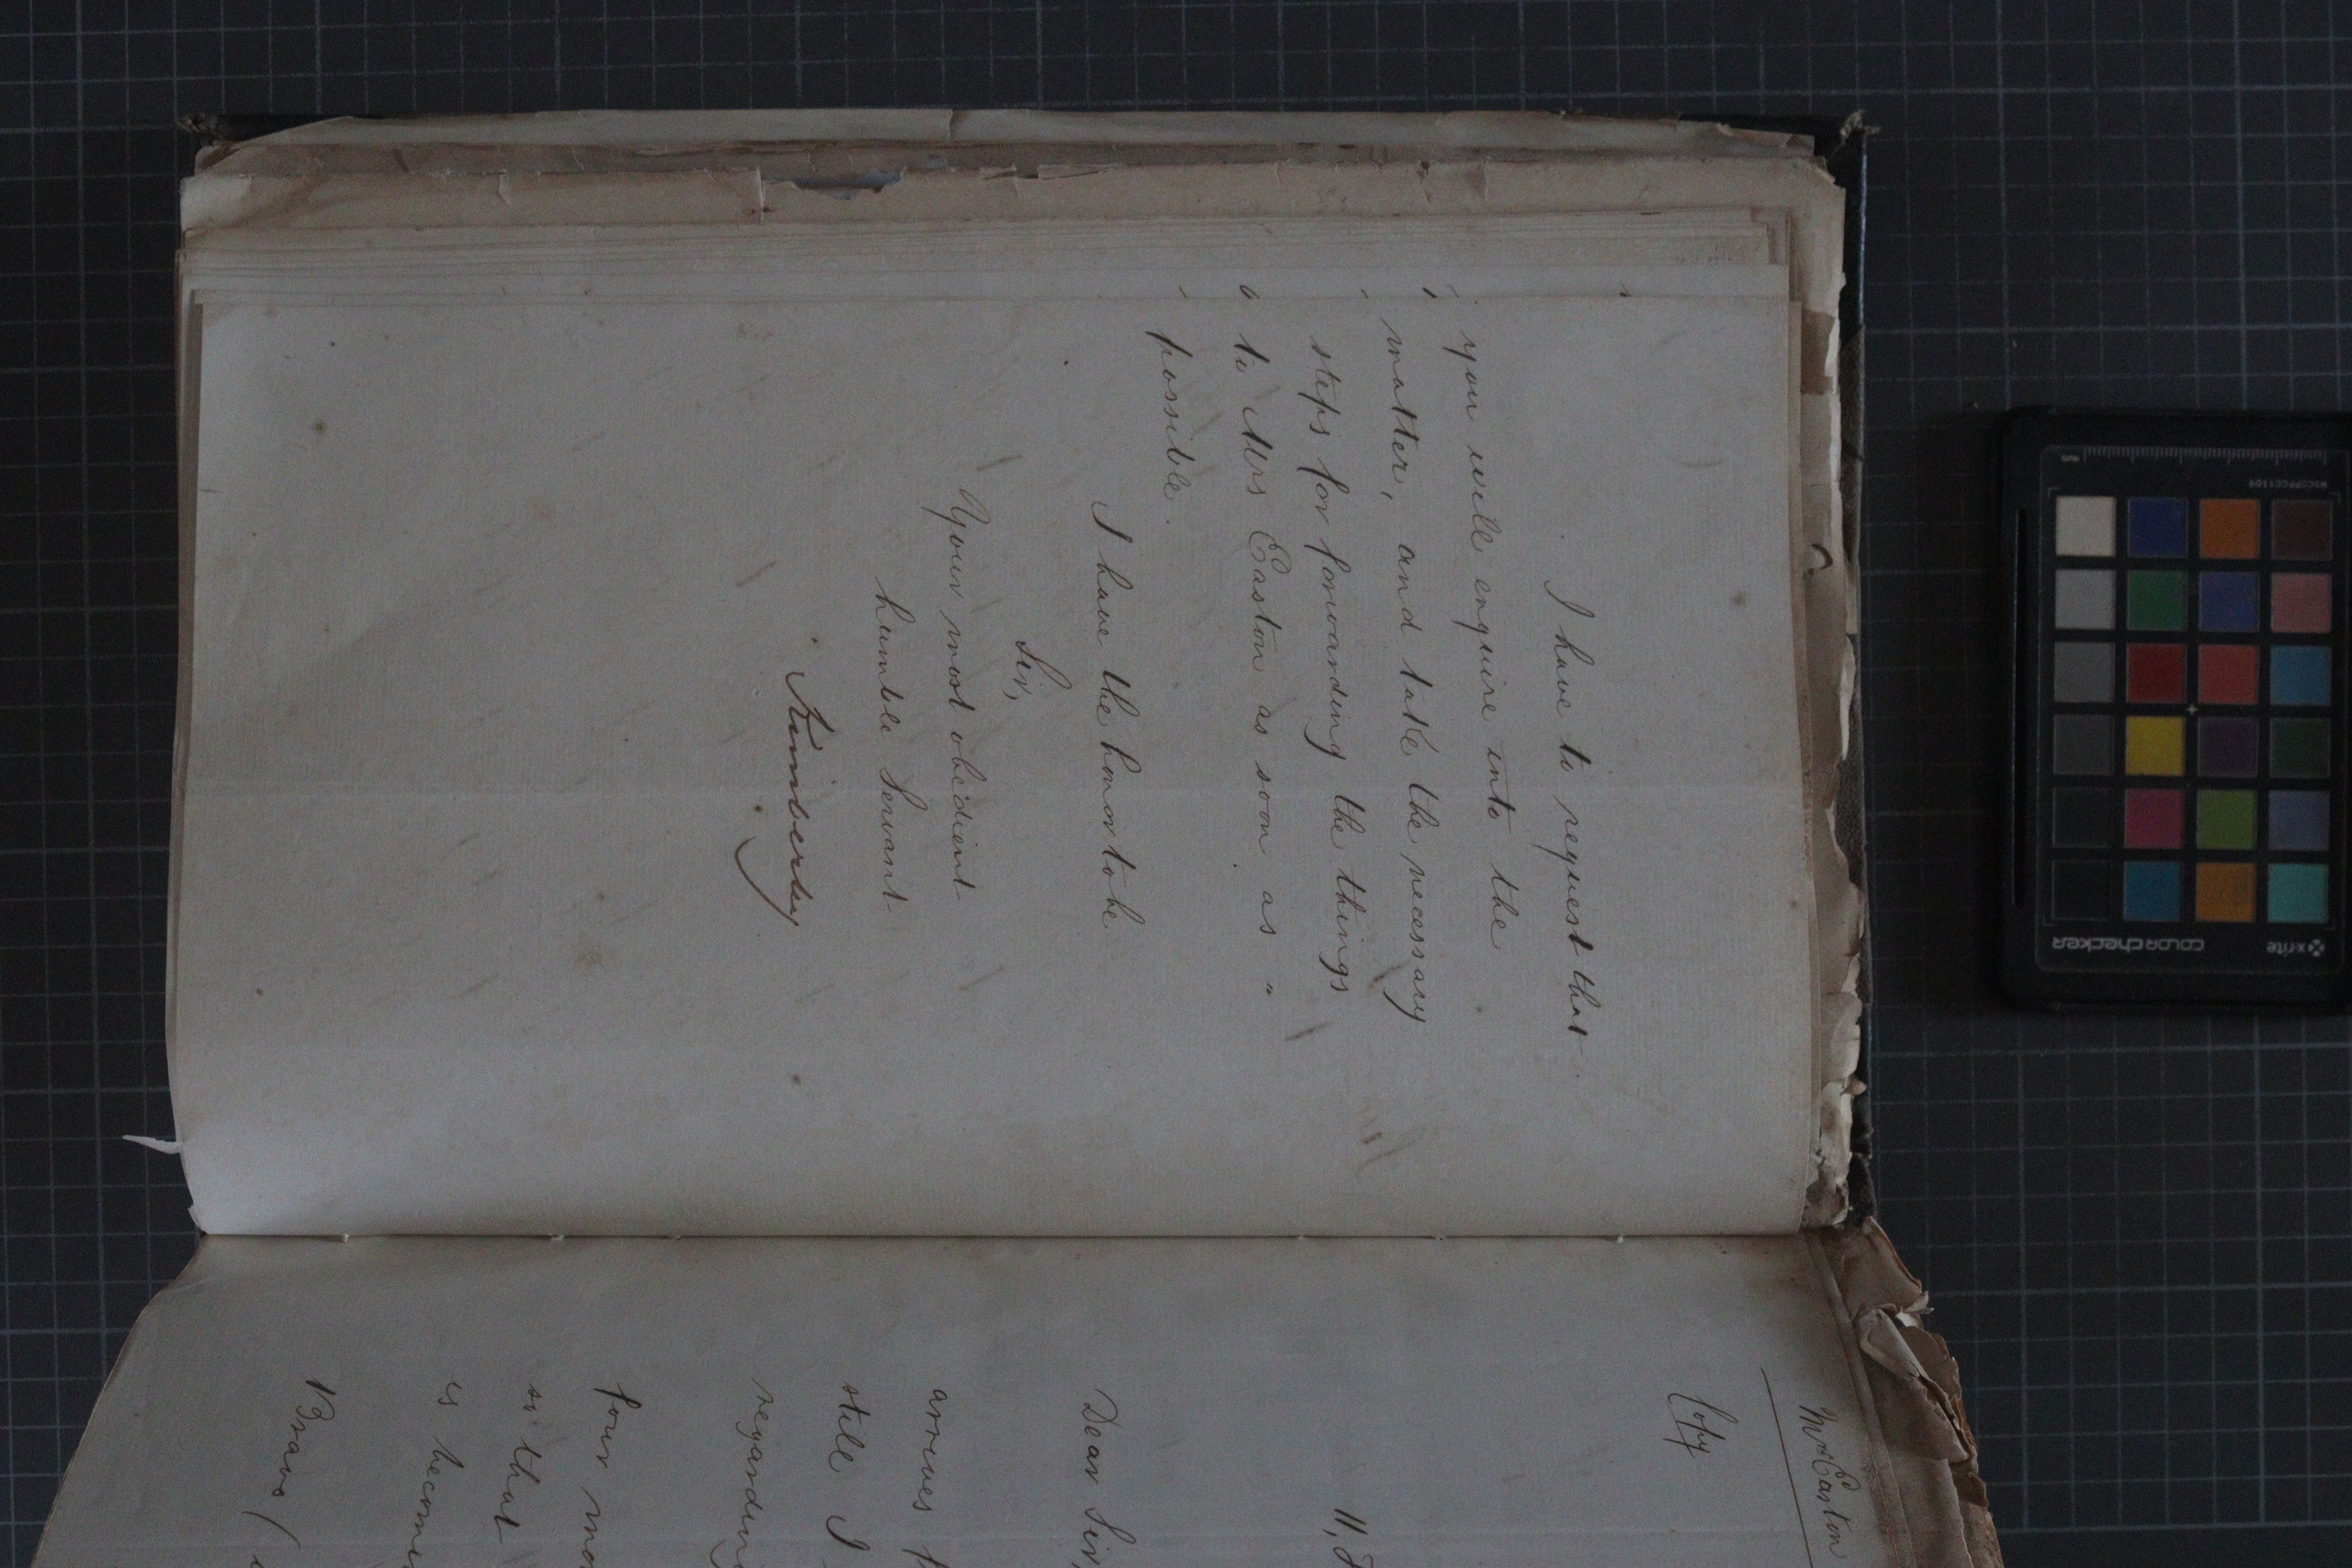 I have to request that
you will enquire into the
matter, and take the necessary
steps for forwarding the things
to Mrs Easton as soon as "
possible.
I have the honor to be
Sir,
Your most obedient
humble Servant
Kimberley
Mrs Easton
Copy
11,
Dear Sir,
arrives
still I
regarding
four
so that
is
Bravo (
x-rite
colorchecker
MSCCPPCC1109